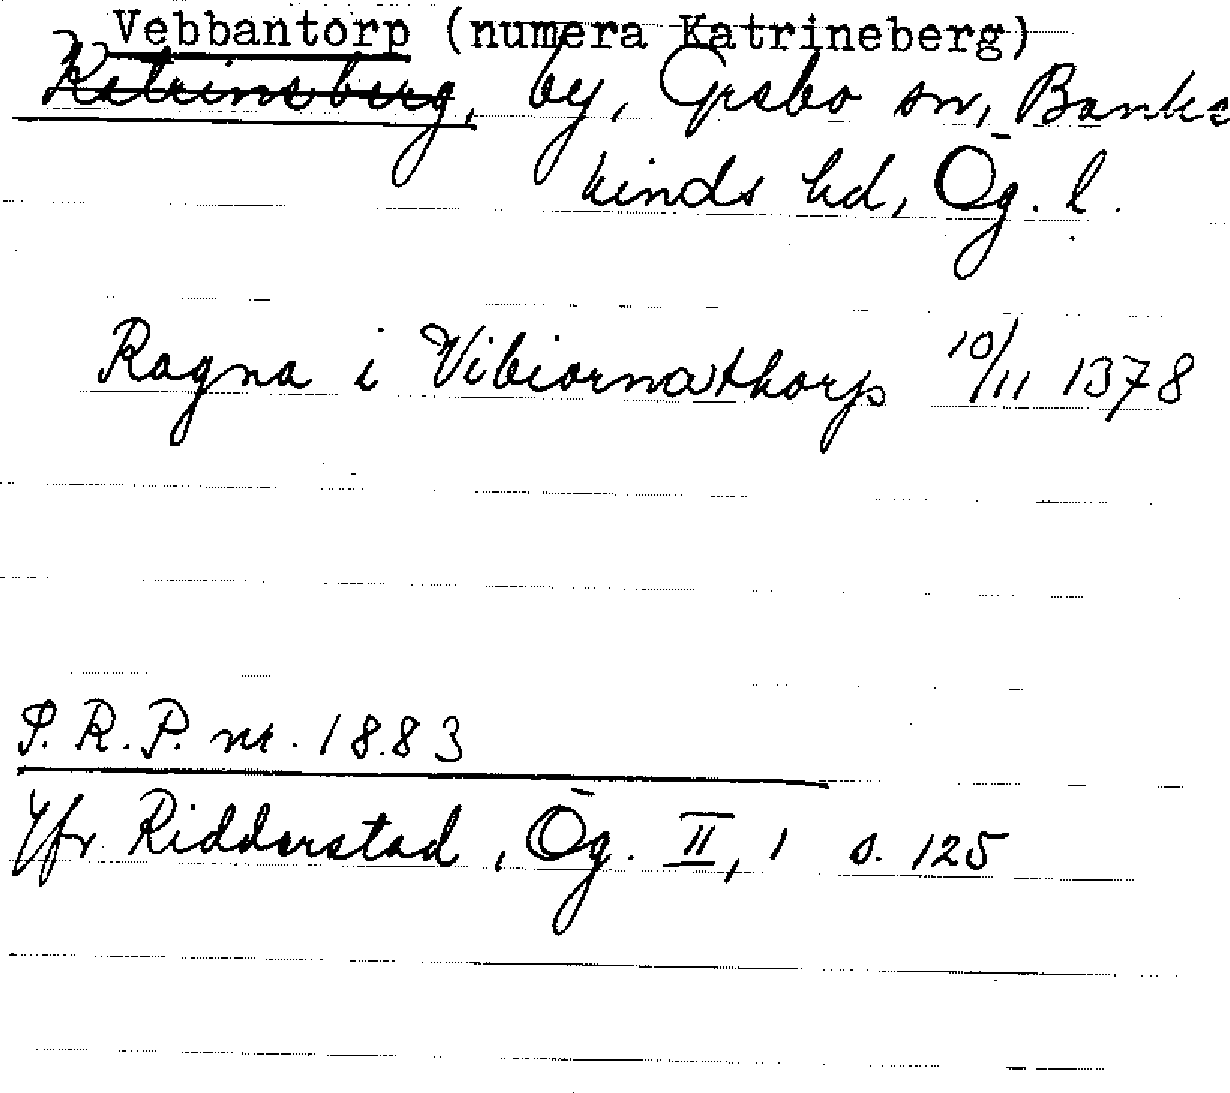 Vebbantorp (numera Katrineberg)
Katrineberg, by, Grebo sn, Banke
kinds hd, Ög. l.
Ragna i Vibiornathorp 10/11 1378
S.R.P. nr. 1883
Jfr Ridderstad, Ög. II, 1 s. 125